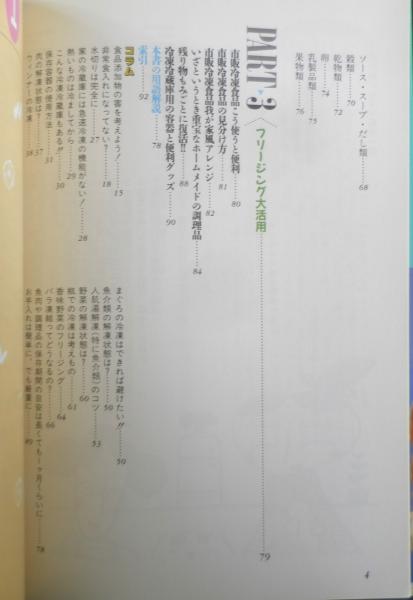 ソース・スープ・だし類……68
穀類……70
乾物類……72
卵……74
乳製品類……75
果物類……76
PART・3 〈フリージング大活用〉……79
市販冷凍食品こう使うと便利……80
市販冷凍食品の見分け方……81
市販冷凍食品我が家風アレンジ……82
いざというとき重宝なホームメイドの調理品……84
残り物もみごとに復活!!……88
冷凍冷蔵庫用の容器と便利グッズ……90
本書の用語解説……78
索引……92
コラム
食品添加物の害を考えよう!……15
非常食入れになってない?……18
水切りは完全に……27
家の冷蔵庫には急速冷凍の機能がない!……28
熱いものは冷ましてから……29
こんな冷凍冷蔵庫もある!!……30
保存容器の使用方法……31
肉の解凍状態は?……37
ウィンナーの冷凍……38
まぐろの冷凍はできれば避けたい!!……50
魚介類の解凍状態は?……50
人肌湯解凍(特に魚介類)のコツ……53
野菜の解凍状態は?……60
瓶での冷凍は考えもの……61
香味野菜のフリージング……64
バラ凍結ってどうなるの?……66
魚肉や調理品の保存期間の目安は長くても一ヶ月くらいに……78
お手入れは簡単に、でも慎重に……49
4